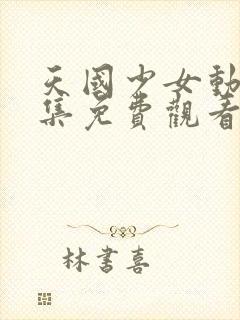 天國少女動
集免費觀看
林書喜